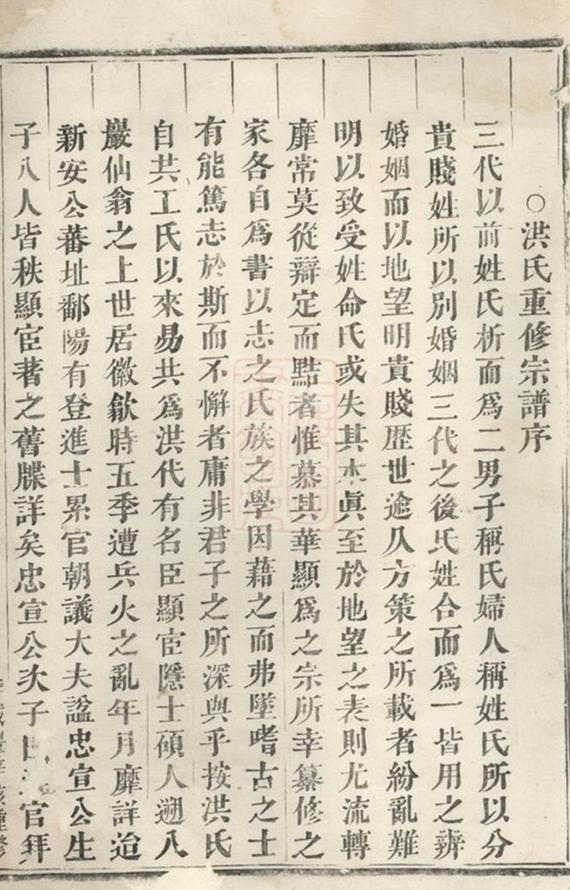 ○洪氏重修宗譜序
三代以前姓氏析而爲二男子稱氏婦人稱姓氏所以分
貴賤姓所以別婚姻三代之後氏姓合而爲一皆用之辨
婚姻而以地望明貴賤歷世逾久方策之所載者紛亂難
明以致受姓命氏或失其本眞至於地望之表則尤流轉
靡常莫從辯定而黠者惟慕其華顯爲之宗所幸纂修之
家各自爲書以志之氏族之學因藉之而弗墜嗜古之士
有能篤志於斯而不懈者庸非君子之所深與乎按洪氏
自共工氏以來易共爲洪代有名臣顯宦隱士碩人遡八
巖仙翁之上世居徽歙時五季遭兵火之亂年月靡詳迨
新安公蕃址鄱陽有登進士累官朝議大夫諡忠宣公生
子八人皆秩顯宦著之舊牒詳矣忠宣公次子曰 官拜
重修